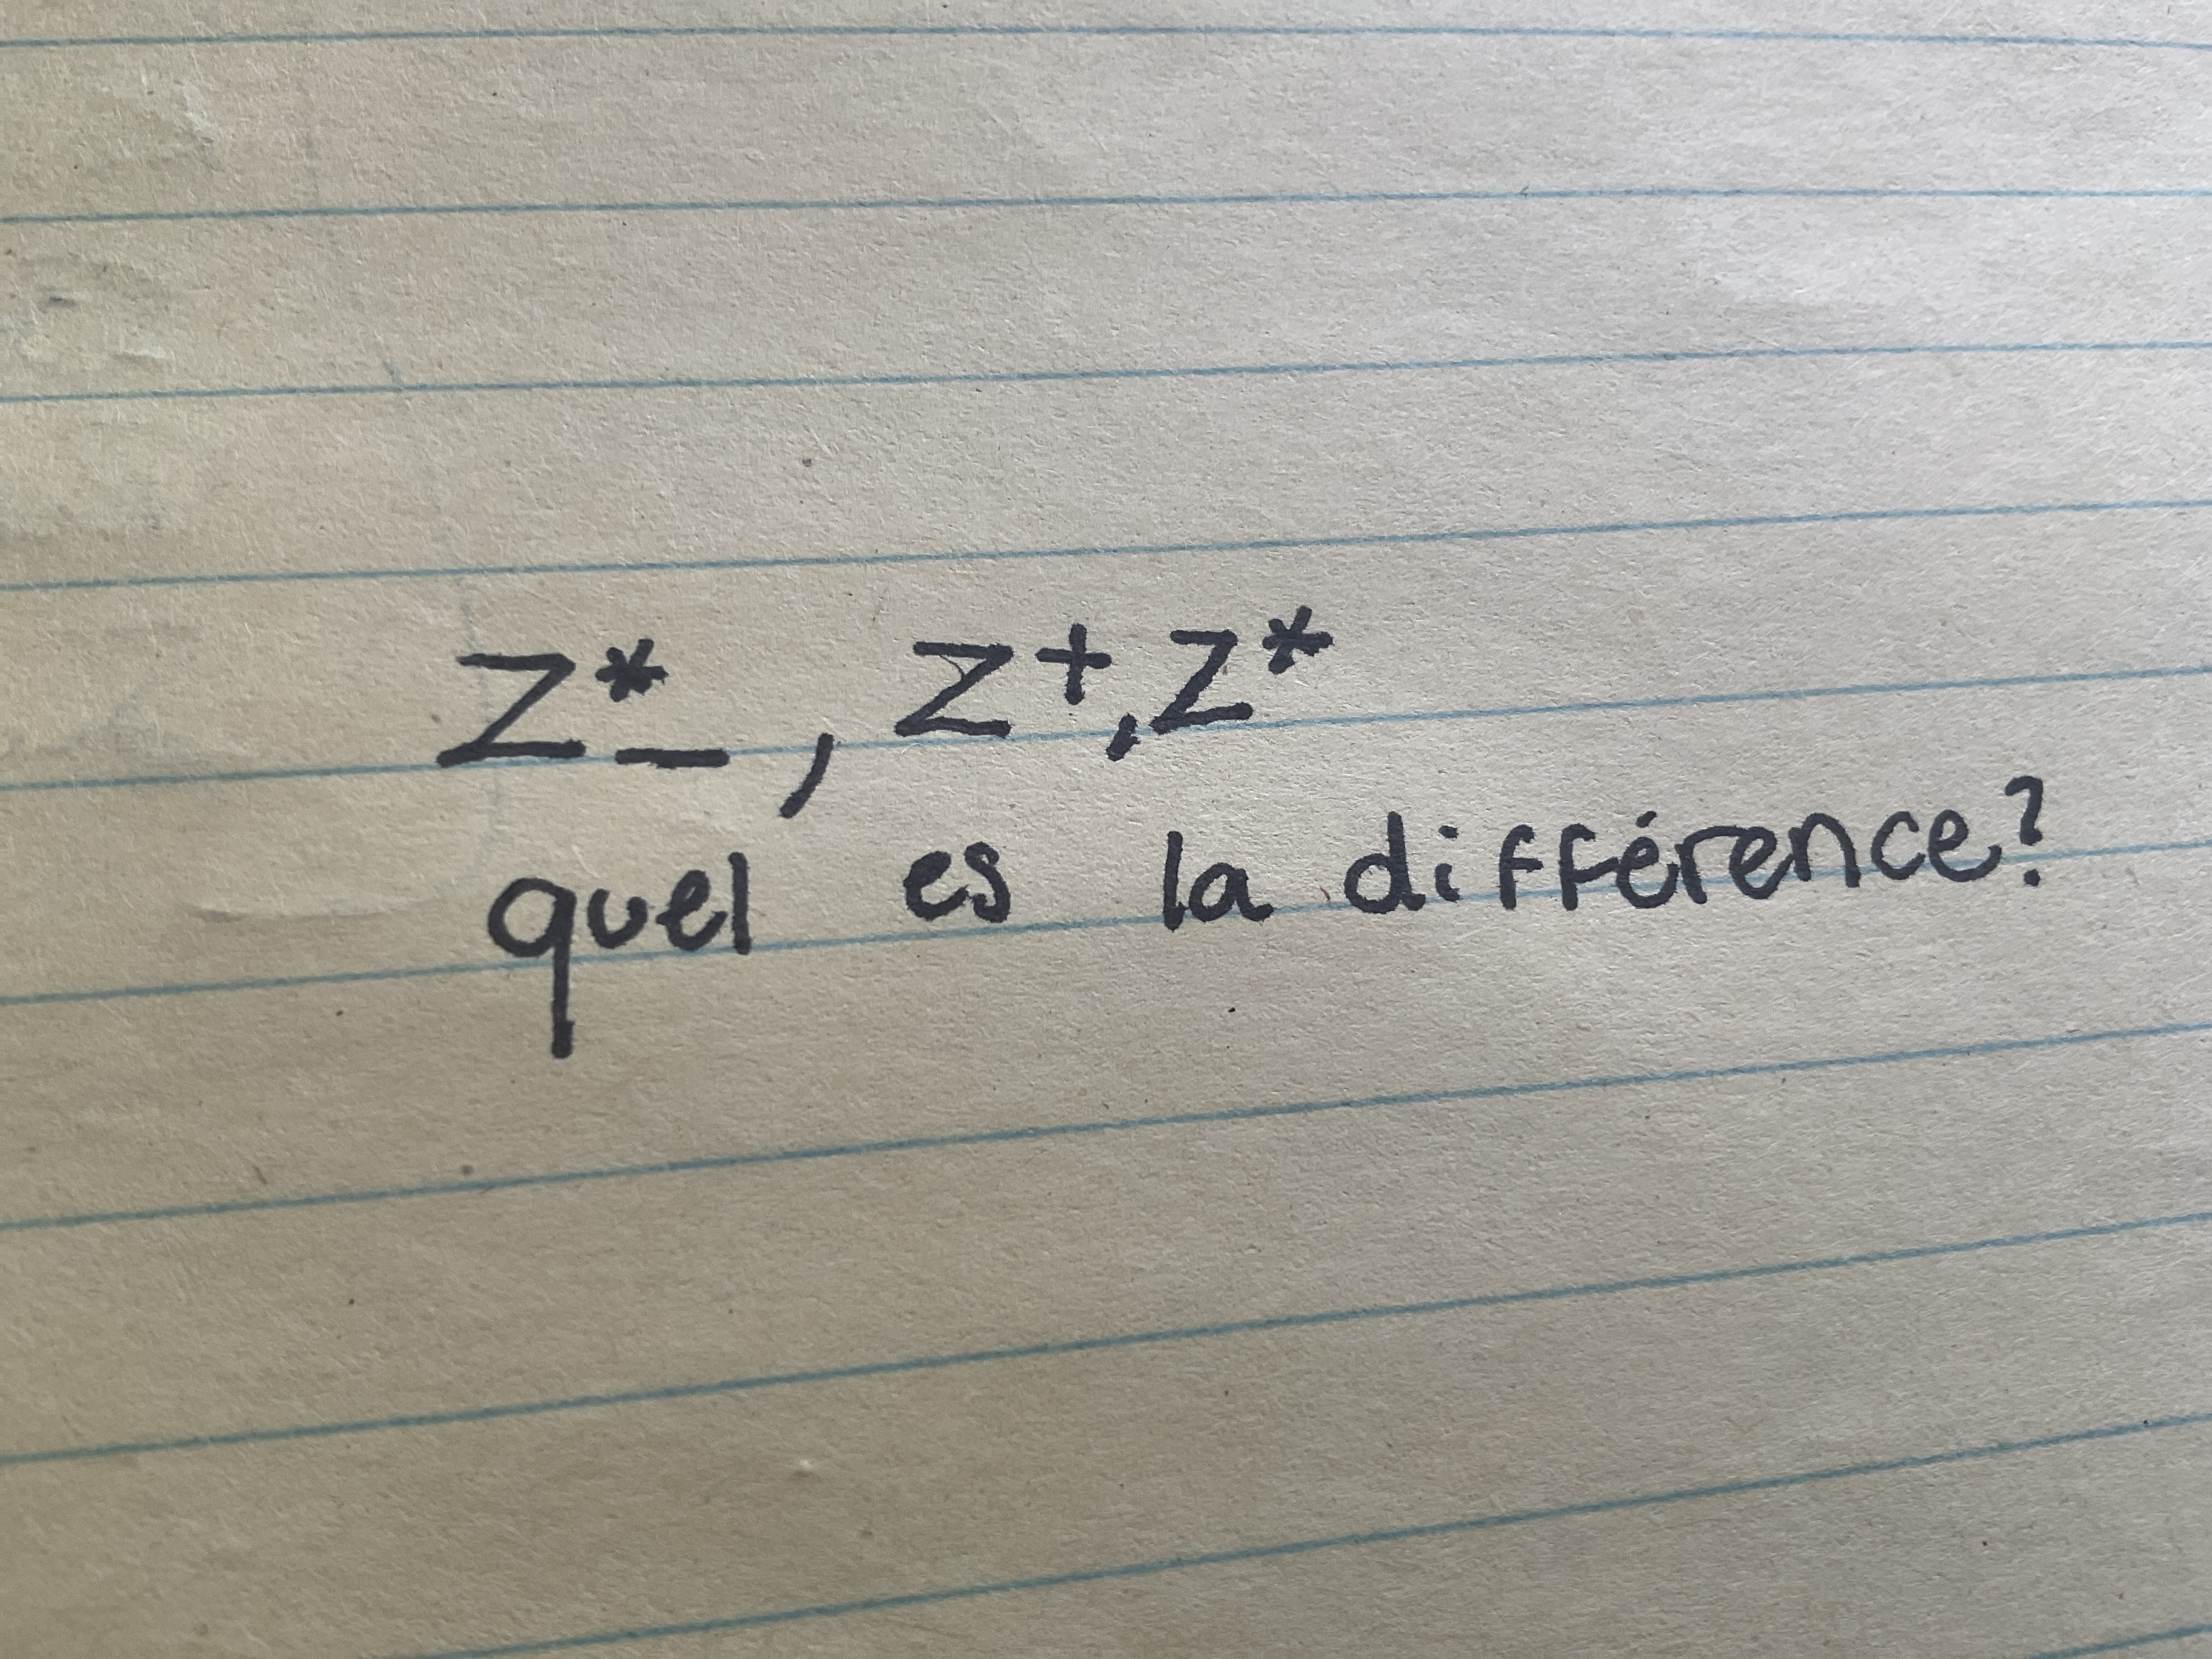 Z*_, Z+,Z*
quel es la différence?